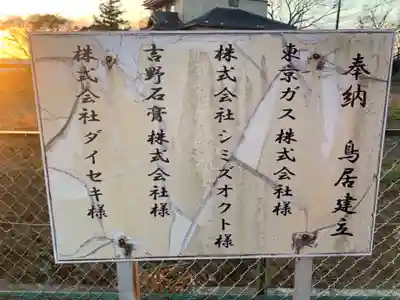 奉納 鳥居建立
東京ガス株式会社様
株式会社シミズオクト様
吉野石膏株式会社様
株式会社ダイセキ様